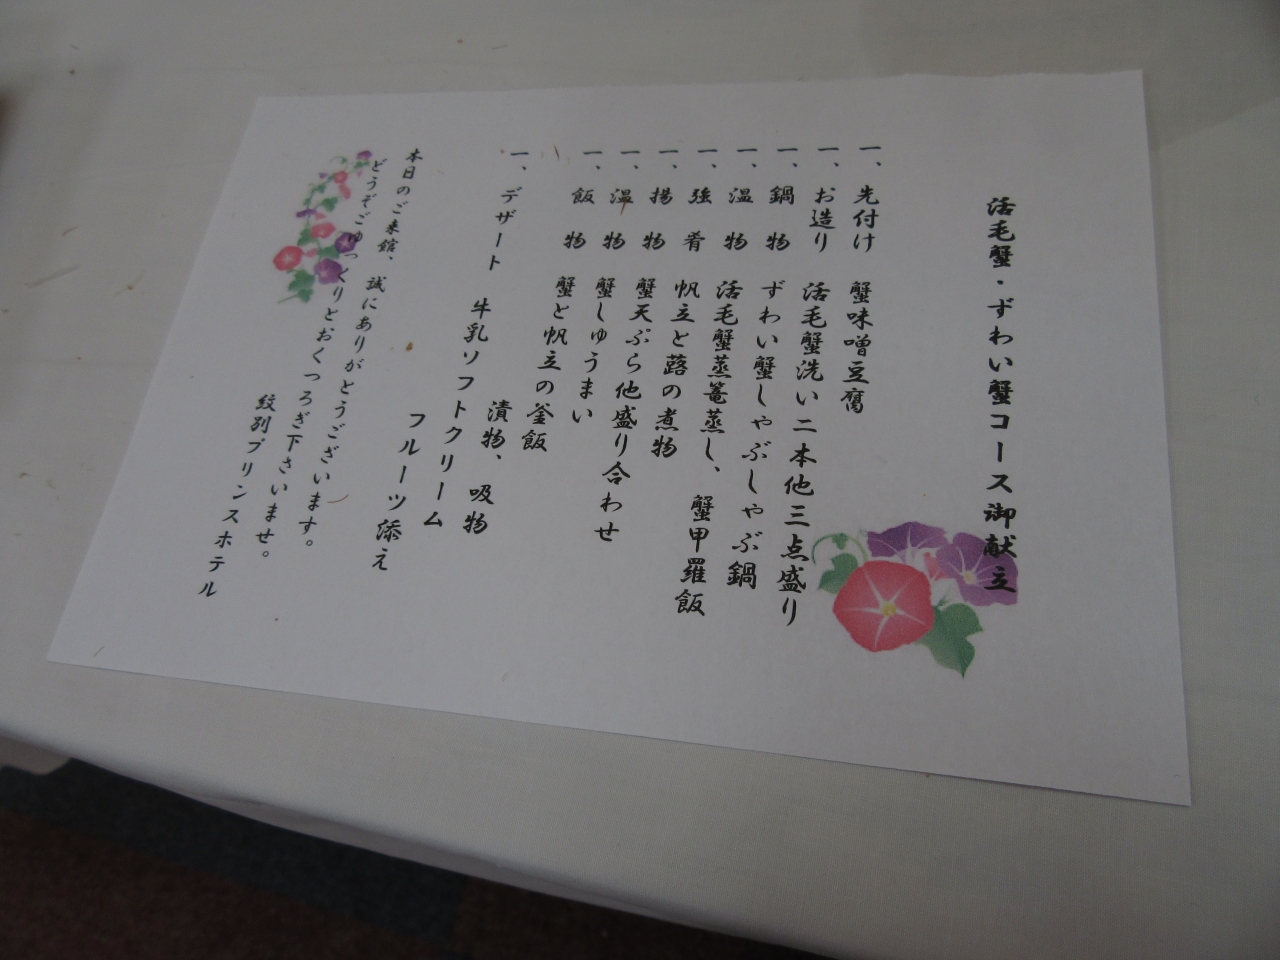 活毛蟹・ずわい蟹コース御献立
一、先付け 蟹味噌豆腐
一、お造り 活毛蟹洗い二本他三点盛り
一、鍋物 ずわい蟹しゃぶしゃぶ鍋
一、温物 活毛蟹蒸篭蒸し、蟹甲羅飯
一、強肴 帆立と蕗の煮物
一、揚物 蟹天ぷら他盛り合わせ
一、温物 蟹しゅうまい
一、飯物 蟹と帆立の釜飯
漬物、吸物
一、デザート 牛乳ソフトクリーム
フルーツ添え
本日のご来館、誠にありがとうございます。
どうぞごゆっくりとおくつろぎ下さいませ。
紋別プリンスホテル